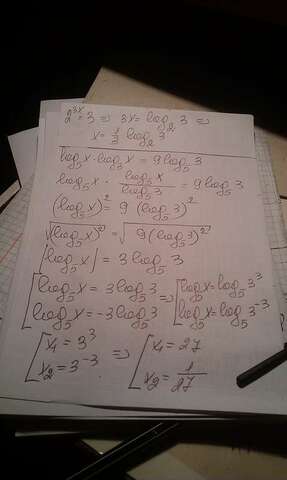 2^{3x} = 3 ⇒ 3x = log_2 3 ⇒
x = 1/3 log_2 3
log_5 x · log_3 x = 9 log_5 3
log_5 x · log_5 x / log_5 3 = 9 log_5 3
(log_5 x)^2 = 9 (log_5 3)^2
√(log_5 x)^2 = √9 (log_5 3)^2
|log_5 x| = 3 log_5 3
[ log_5 x = 3 log_5 3 ⇒ [ log_5 x = log_5 3^3
log_5 x = -3 log_5 3 log_5 x = log_5 3^{-3}
[ x_1 = 3^3 ⇒ [ x_1 = 27
x_2 = 3^{-3} x_2 = 1/27